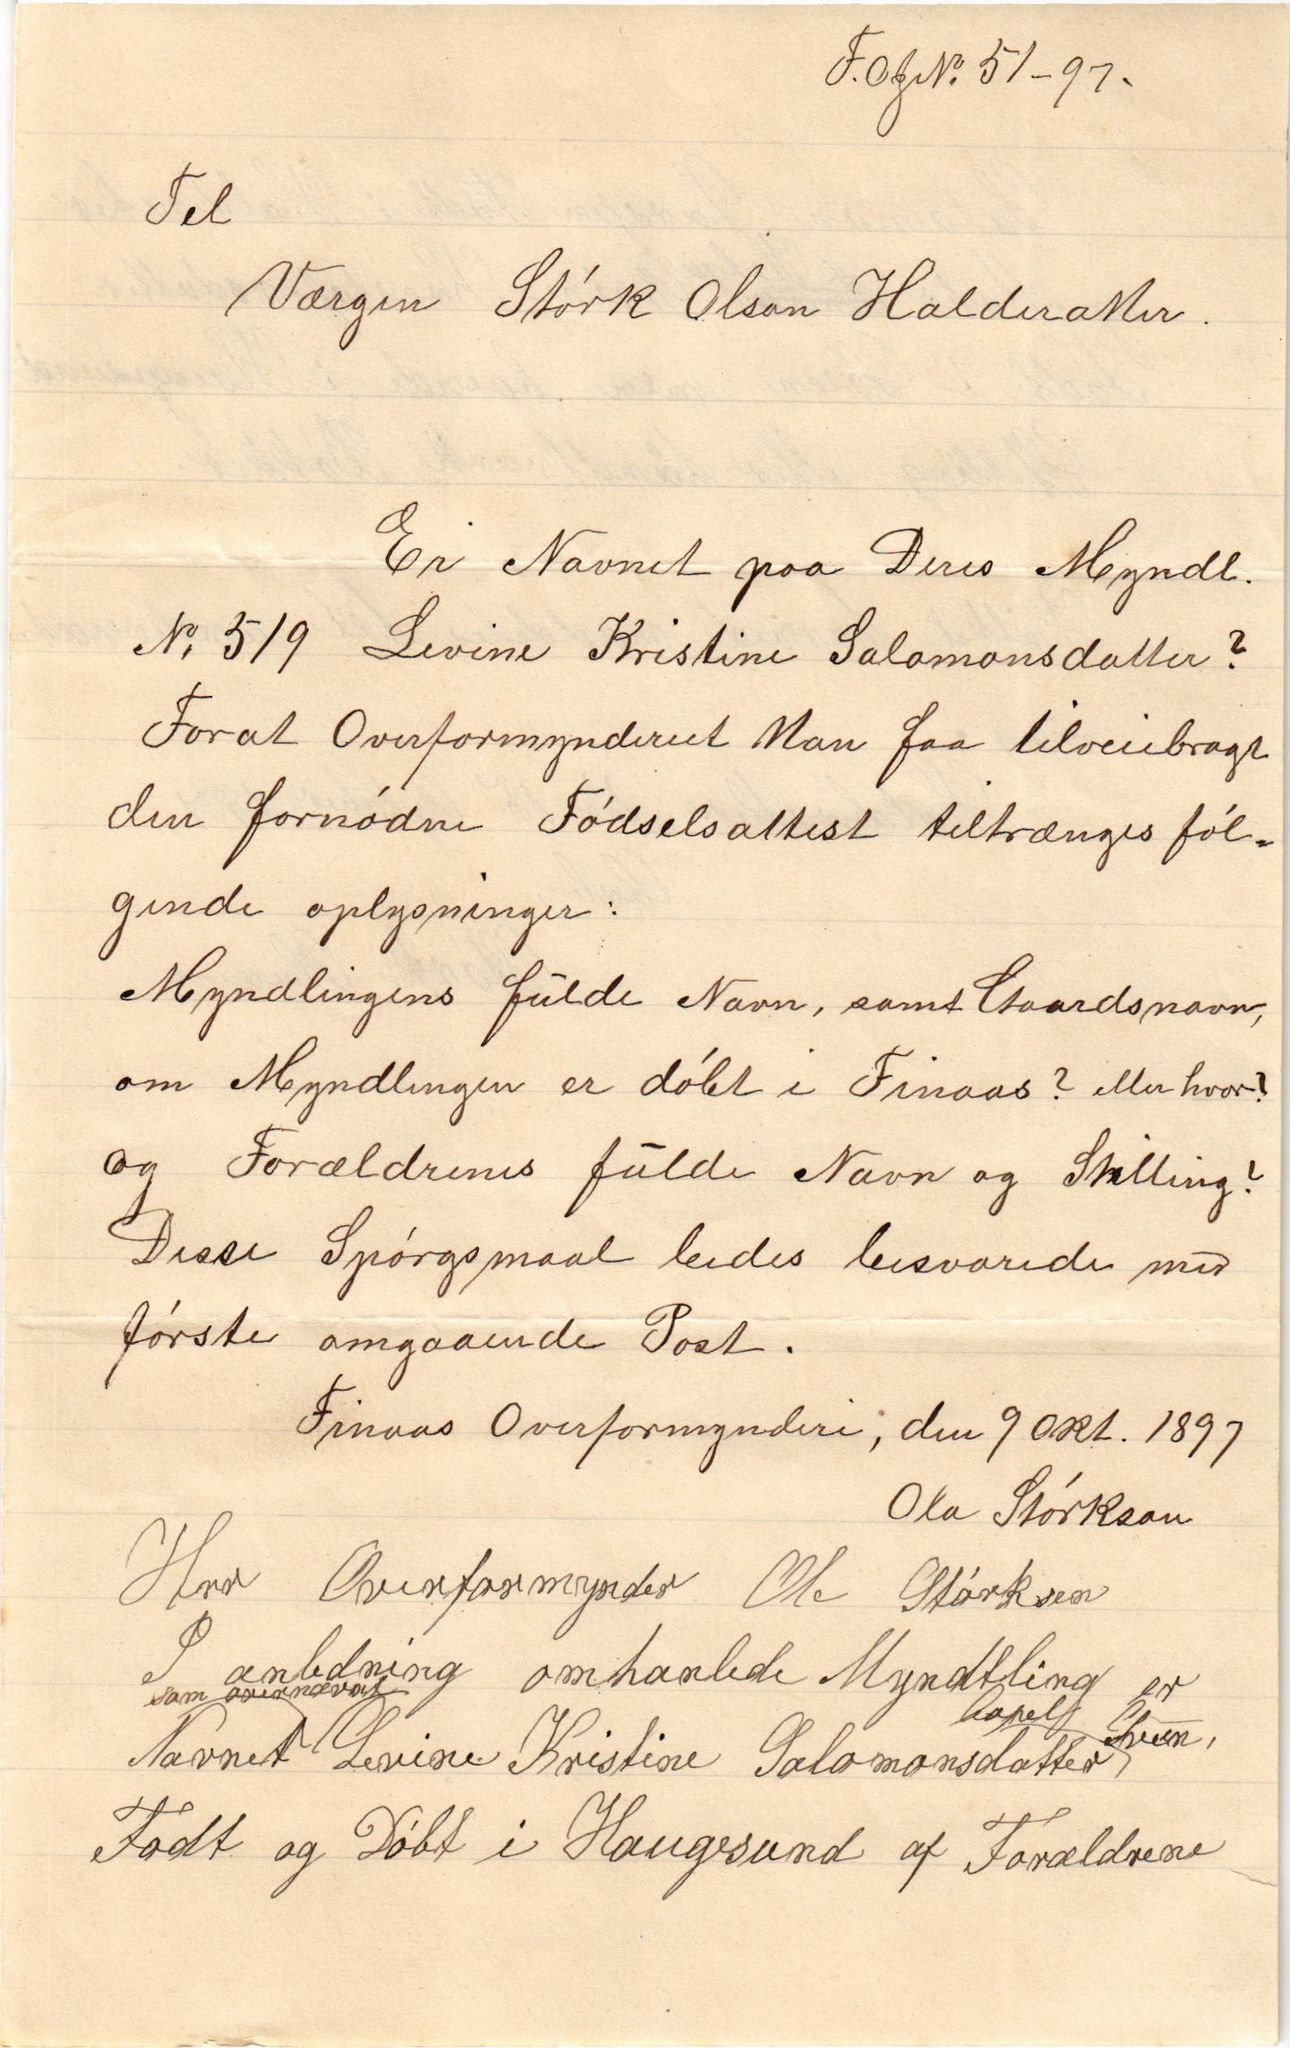 F. Of No. 51-97.
Til
Værgen Störk Olson Halderaker.
Er Navnet paa Deres Myndl.
No. 519 Levine Kristine Salomonsdatter?
Forat Overformynderiet kan faa tilveiebragt
den fornödne Födselsattest tiltrænges föl-
gende oplysninger:
Myndlingens fulde Navn, samt Gaardsnavn,
om Myndlingen er döbt i Finaas? eller hvor?
og Forældrenes fulde Navn og Stilling?
Disse Spörgsmaal bedes besvarede med
förste omgaaende Post.
Finaas Overformynderi, den 9 Okt. 1897
Ola Störkson
Herr Overformynder Ole Störksen
I anledning omhanlede Myndtling er
som overnævnt
Navnet Levine Kristine Salomonsdatter,
Födt og Döbt i Haugesund af Forældrene